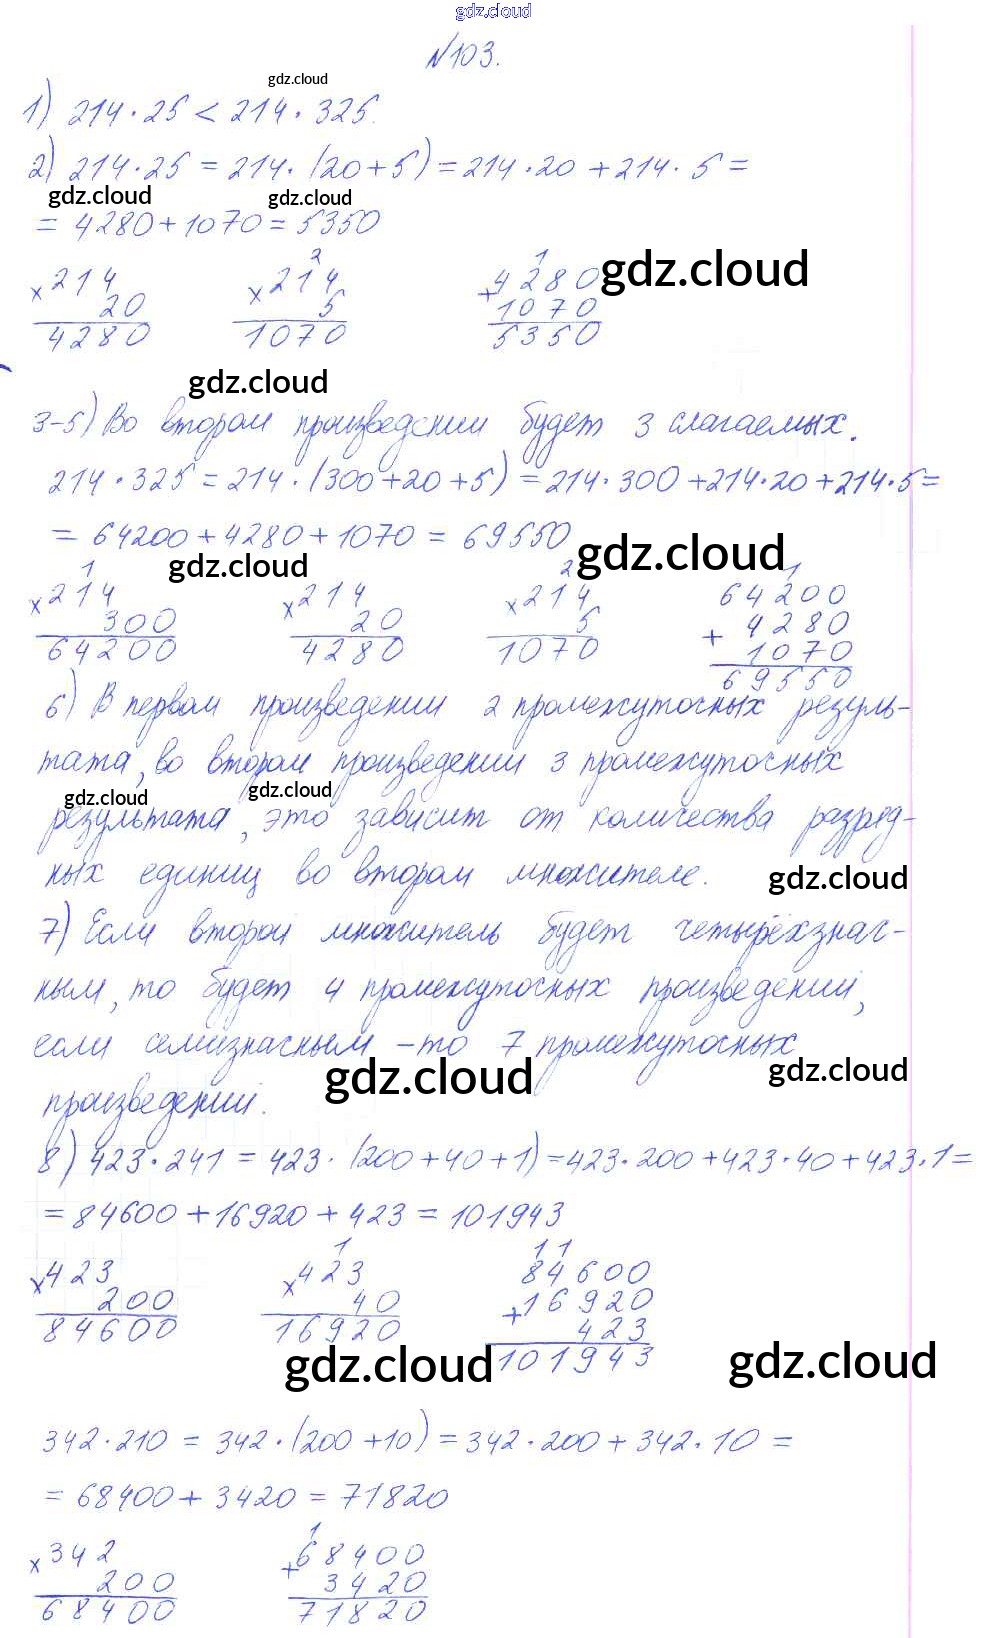 gdz.cloud
№103.
gdz.cloud
1) 214·25 < 214·325.
2) 214·25 = 214·(20+5) = 214·20 + 214·5 =
gdz.cloud gdz.cloud
= 4280 + 1070 = 5350
2 1
×214 ×214 4280 gdz.cloud
20 5 +1070
4280 1070 5350
gdz.cloud
3-5) Во втором произведении будет 3 слагаемых.
214·325 = 214·(300+20+5) = 214·300 + 214·20 + 214·5 =
= 64200 + 4280 + 1070 = 69550
gdz.cloud gdz.cloud
1 2 1
×214 ×214 ×214 64200
300 20 5 + 4280
64200 4280 1070 1070
69550
6) В первом произведении 2 промежуточных резуль-
тата, во втором произведении 3 промежуточных
gdz.cloud gdz.cloud
результата, это зависит от количества разряд-
ных единиц во втором множителе.
gdz.cloud
7) Если второй множитель будет четырёхзнач-
ным, то будет 4 промежуточных произведений,
если семизначным – то 7 промежуточных
gdz.cloud gdz.cloud
произведений.
8) 423·241 = 423·(200+40+1) = 423·200 + 423·40 + 423·1 =
= 84600 + 16920 + 423 = 101943
1 11
×423 ×423 84600
200 40 +16920
84600 16920 423
101943
gdz.cloud gdz.cloud
342·210 = 342·(200+10) = 342·200 + 342·10 =
= 68400 + 3420 = 71820
1
×342 +68400
200 3420
68400 71820